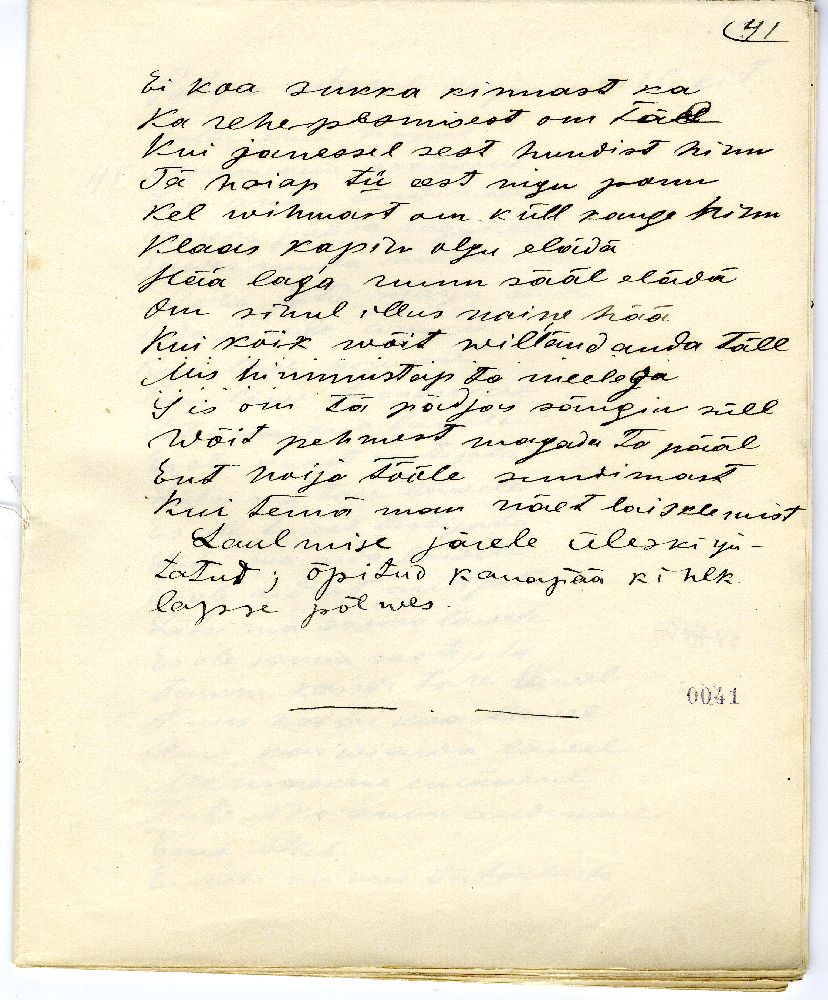 41
Ei koa sukka kinnast ka
Ka rehe pesmisest om täll
Kui janessel sest hundist hirm
Tä hoiap tü eest nigu
Kel wihmast om küll kange hirm
Klaas kapin olgu elädä
Hää laga ruum sääl elädä
Om sinul illus naine hää
Kui kõik wõit willand anda täll
Mis himmustap ta meelega
Siis om tä pädjas sängin süll
Wõit pehmest magada ta pääl
Ent hoija tööle sundimast
Kui temä man näet laisklemist
Laulmise järele üleskirju-
tatud; õpitud Kanapää kihlk
lapse põlwes.
0041